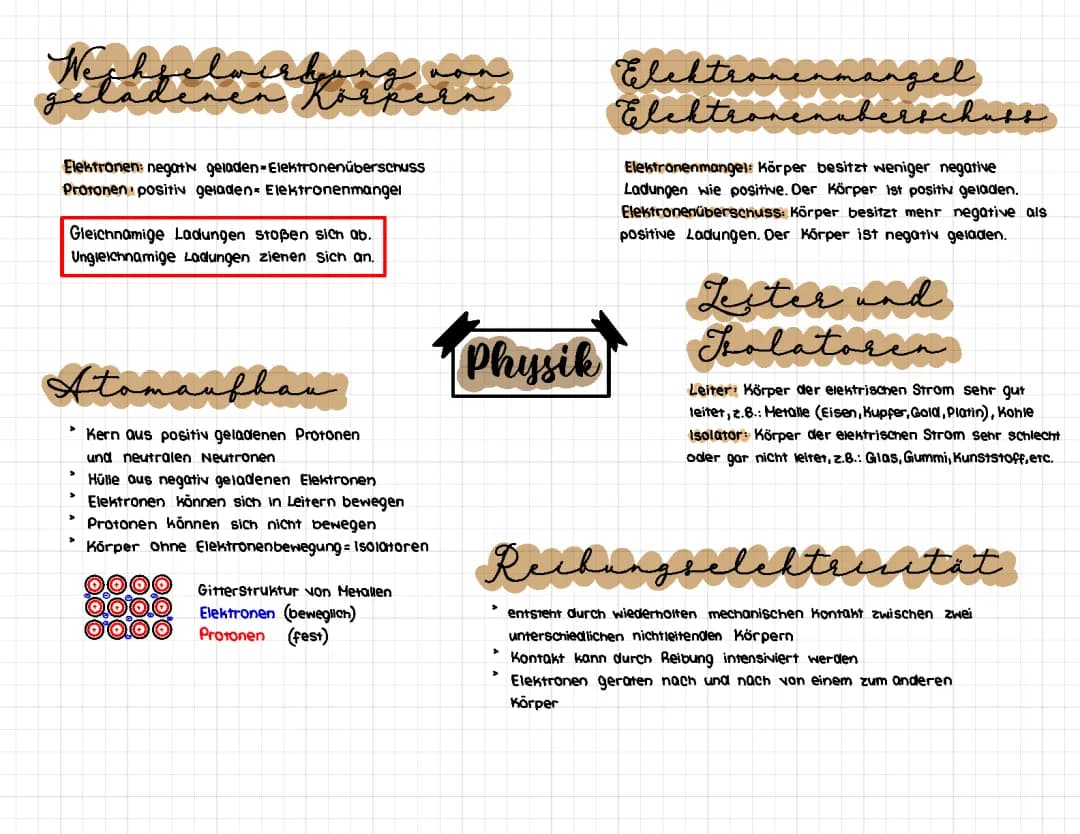 Wechselwirkung von
geladenen Körpern
Elektronen: negativ geladen=Elektronenüberschuss
Protonen: positiv geladen= Elektronenmangel
Gleichnamige Ladungen stoßen sich ab.
Ungleichnamige Ladungen ziehen sich an.
Elektronenmangel
Elektronenüberschuss
Elektronenmangel: Körper besitzt weniger negative
Ladungen wie positive. Der Körper ist positiv geladen.
Elektronenüberschuss: Körper besitzt mehr negative als
positive Ladungen. Der Körper ist negativ geladen.
Physik
Leiter und
Isolatoren
Leiter: Körper der elektrischen Strom sehr gut
leitet, z.B.: Metalle (Eisen, Kupfer, Gold, Platin), Kohle
Isolator: Körper der elektrischen Strom sehr schlecht
oder gar nicht leitet, z.B.: Glas, Gummi, Kunststoff, etc.
Atomaufbau
Kern aus positiv geladenen Protonen
und neutralen Neutronen
Hülle aus negativ geladenen Elektronen
Elektronen können sich in Leitern bewegen
Protonen können sich nicht bewegen
Körper ohne Elektronenbewegung = Isolatoren
Gitterstruktur von Metallen
Elektronen (beweglich)
Protonen (fest)
Reibungselektrizität
entsteht durch wiederholten mechanischen Kontakt zwischen zwei
unterschiedlichen nichtleitenden Körpern
Kontakt kann durch Reibung intensiviert werden
Elektronen geraten nach und nach von einem zum anderen
Körper